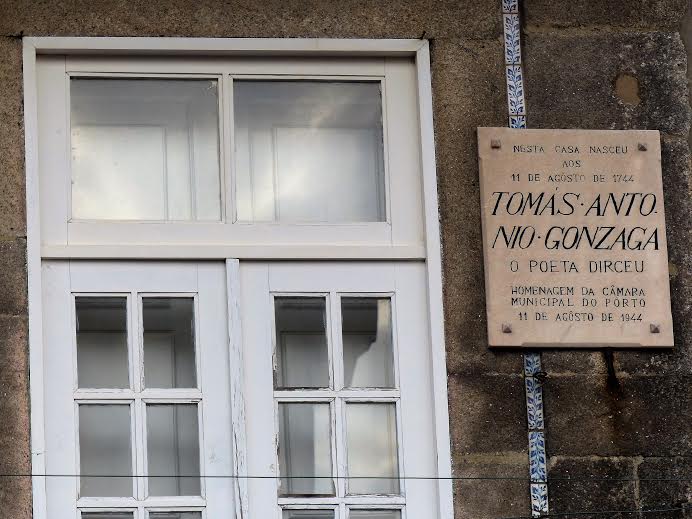 NESTA CASA NASCEU
AOS
11 DE AGÔSTO DE 1744
TOMÁS·ANTO-
NIO·GONZAGA
O POETA DIRCEU
HOMENAGEM DA CÂMARA
MUNICIPAL DO PÔRTO
11 DE AGÔSTO DE 1944